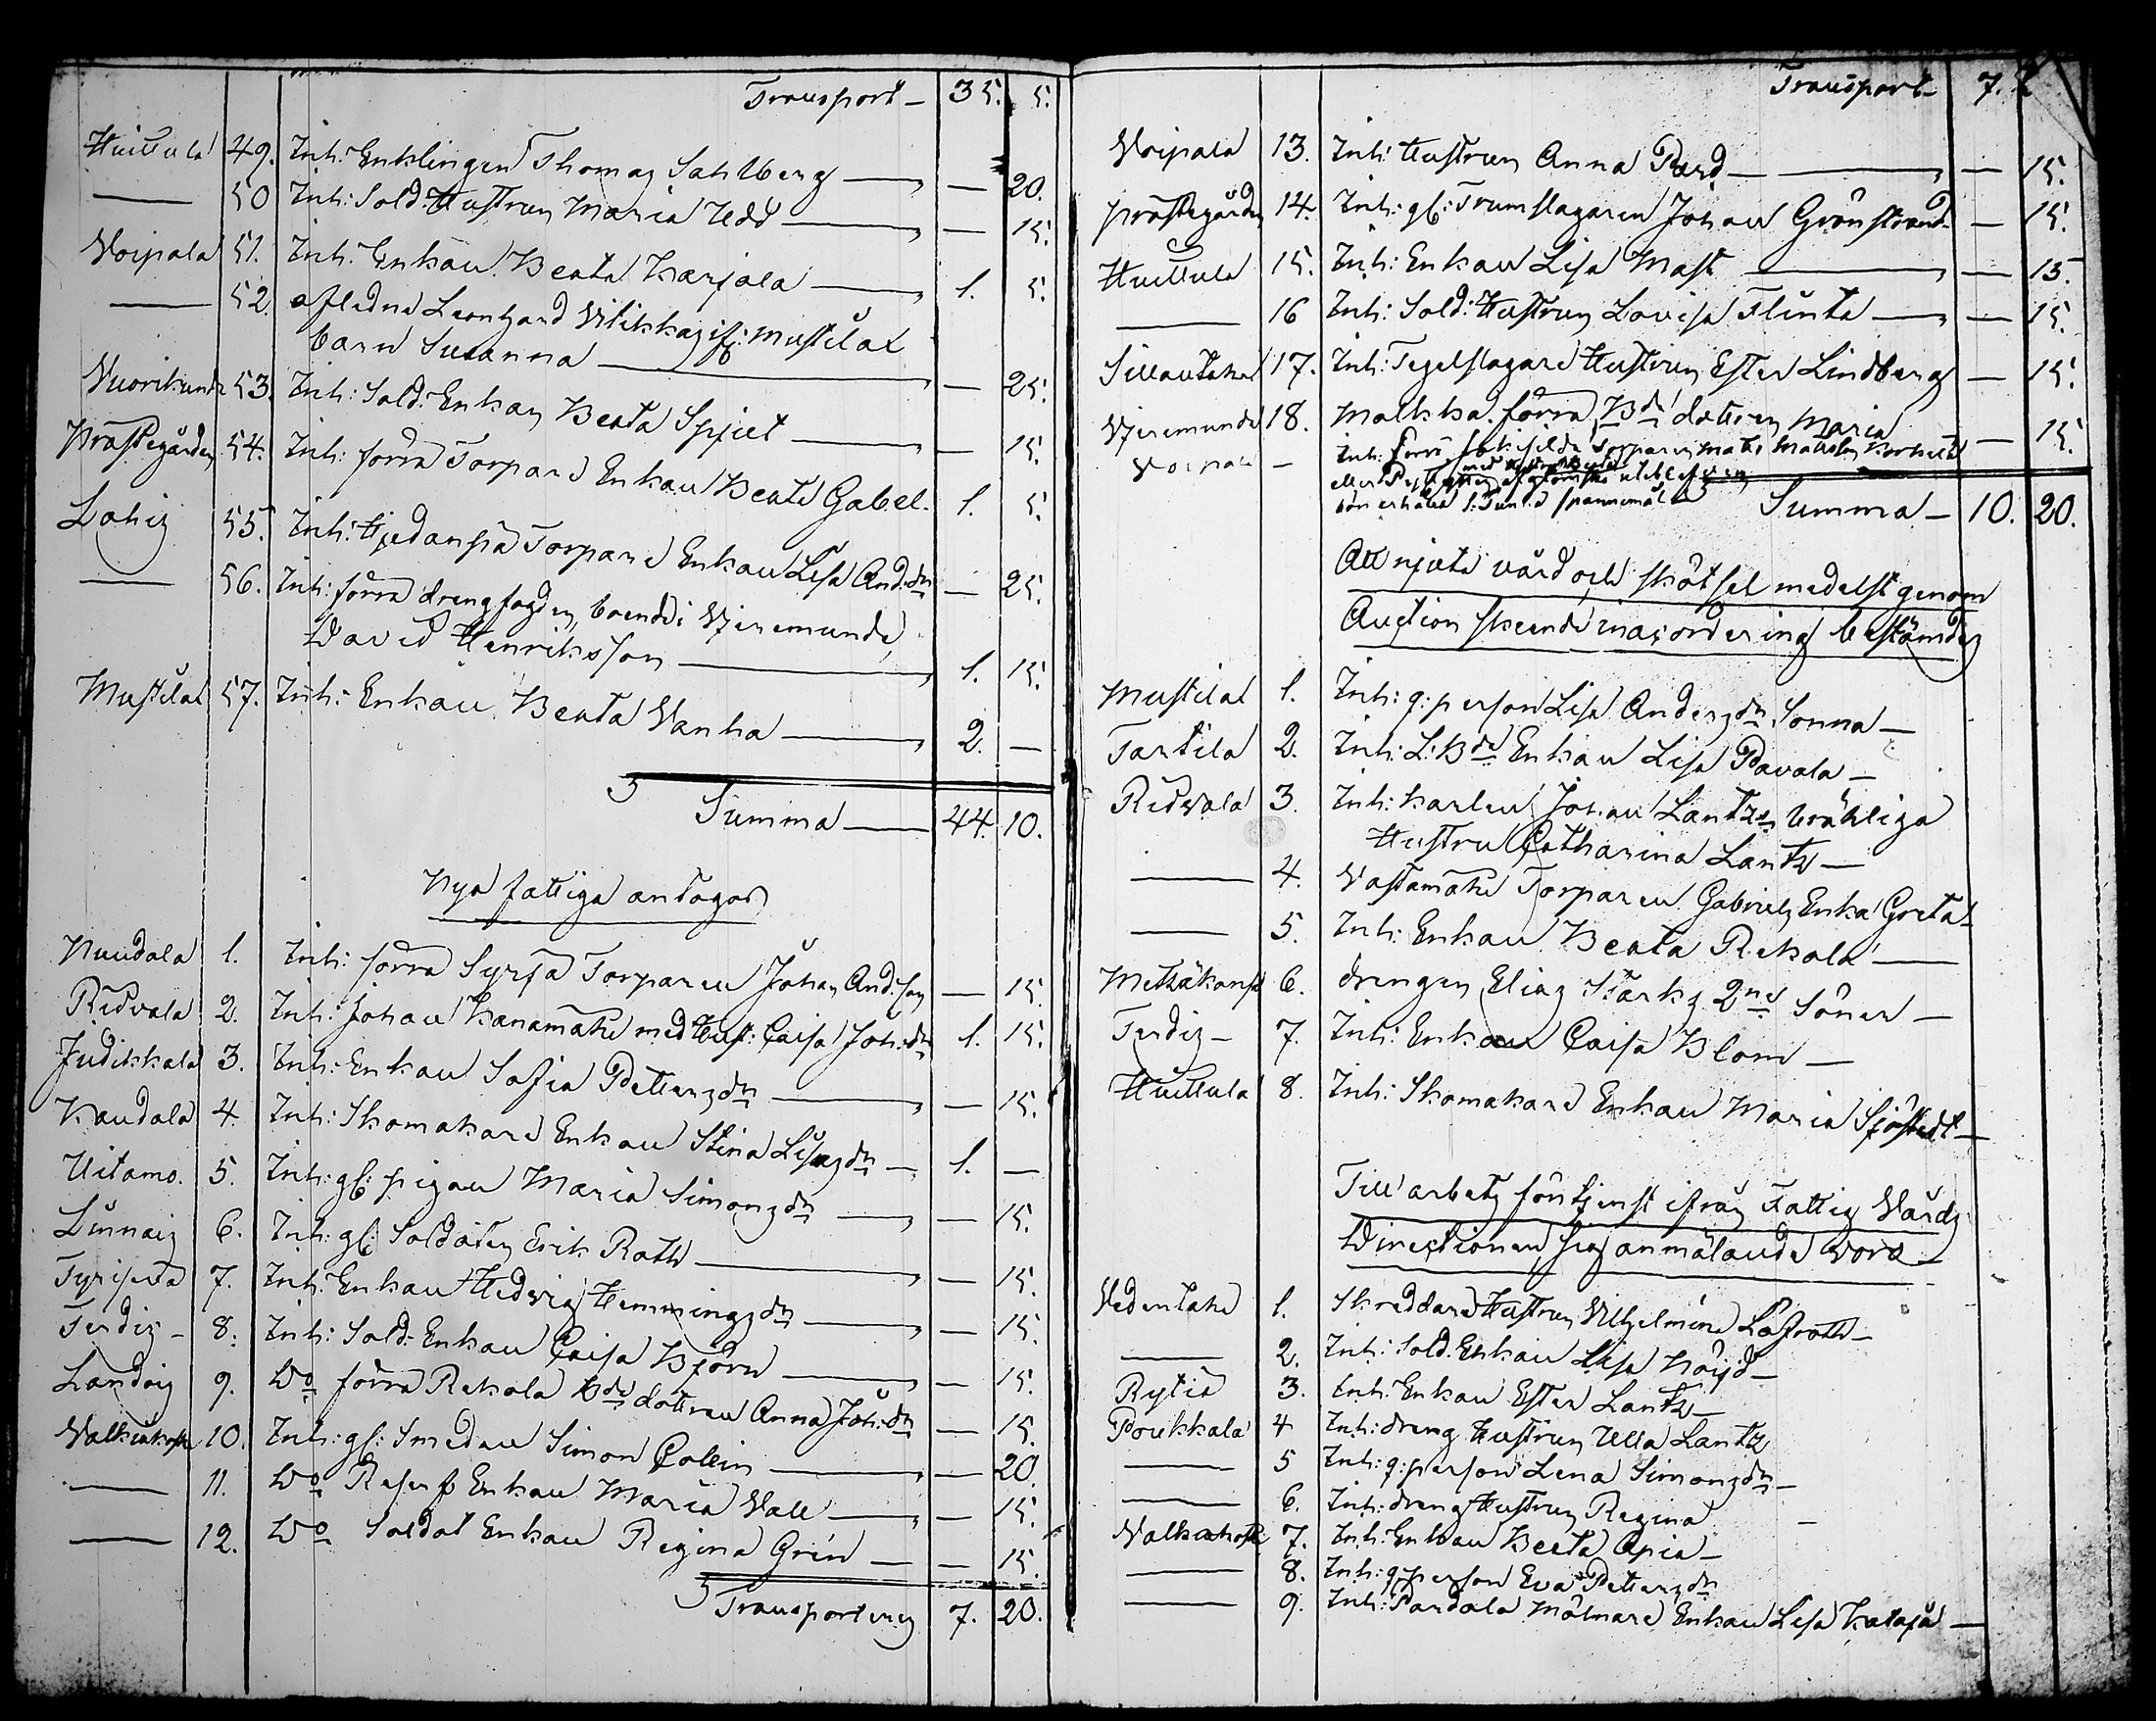 Transport — 35. 5.
Huittula 49. Inh: Enklingen Thomas Sahlberg — — 20.
— 50 Inh: Sold: Hustrun Maria Uddd — — 15.
Voipala 51. Inh: Enkan Beata Karjala — 1. 5.
— 52. afledne Leonhard Vilikkas ifr: Mustila
barn Susanna — — 25.
Vuorikunda 53. Inh: Sold: Enkan Beata Spjut — — 15.
Prästegården 54. Inh: förra Torpare Enkan Beata Gabel. 1. 5.
Lahis 55. Inh: Torpare Enkan Lisa And:dr — 25.
— 56. Inh: förra drengfogden, boende i Wjeremunde,
David Henriksson — 1. 15.
Mustila 57. Inh: Enkan Beata Vanha — 2. —
Summa — 44. 10.
Nya fattiga antagos
Naudala 1. Inh: förra Syrjä Torparen Johan And:son — 15.
Ridvala 2. Inh: Johan Kanamäke med Hust: Caisa Joh:dr 1. 15.
Judikkala 3. Inh: Enkan Sofia Pettersdr — — 15.
Kaudala 4. Inh: Skomakare Enkan Stina Lisasdr — 1. —
Uitamo. 5. Inh: gl: pigan Maria Simonsdr — — 15.
Linnais 6. Inh: gl: Soldaten Erik Rath — — 15.
Tyrisevä 7. Inh: Enkan Hedvig Hemmingsdr — — 15.
Terdis — 8. Inh: Sold: Enkan Caisa Björn — — 15.
Landois 9. Do förra Rekola Bde dottren Anna Joh:dr — 15.
Valkiakoski 10. Inh: gl: Smeden Simon Collin — — 20.
— 11. Do Reserf Enkan Maria Vall — — 15.
— 12. Do Soldat Enkan Regina Grén — — 15.
Transporteras 7. 20.
Transport — 7.
Voipala 13. Inh: Hustrun Anna — — 15.
Prästegården 14. Inh: gl: Trumslagaren Johan Grönstrand — 15.
Huittula 15. Inh: Enkan Lisa Mast — — 15.
— 16 Inh: Sold: Hustrun Lovisa Flinta — — 15.
Sillantaka 17. Inh: Tegelslagare Hustrun Ester Lindberg — 15.
Wjeremunde 18. Malkka förra Bde dottren Maria — 15.
Voipala — Inh: förra Torparen Mats Mattson
bör erhålla 1: Tunna spannemål
Summa — 10. 20.
Att njuta vård och skötsel medelst genom
Auction skeende inacordering bestämdes
Mustila 1. Inh: q: person Lisa Andersdr Sonna —
Tartila 2. Inh: L: Bde Enkan Lisa Pavola —
Ridvala 3. Inh: karlen Johan Lantz's bräkliga
Hustru Catharina Lantz —
— 4. Vastamäke Torparen Gabriels Enka Greta —
— 5. Inh: Enkan Beata Rekola —
Metsäkansa 6. drengen Elias Starks 2ne Söner —
Terdis — 7. Inh: Enkan Caisa Blom —
Huittula 8. Inh: Skomakare Enkan Maria Sjöstedt —
Till arbets förtjenst ifrån Fattig Vårds
Directionen sig anmälande voro —
Vedentaka 1. Skreddare Hustrun Vilhelmina Löfroth —
— 2. Inh: Sold: Enkan Lisa Nöijd —
Rytiä 3. Inh: Enkan Ester Lantz —
Poukkala 4 Inh: dreng Hustrun Ulla Lantz
— 5 Inh: q: person Lena Simonsdr —
— 6. Inh: dreng Hustrun Regina —
Valkiakoski 7. Inh: Enkan Beata Apia —
— 8. Inh: q person Eva Pettersdr
— 9. Inh: Pardala Mölnare Enkan Lisa —